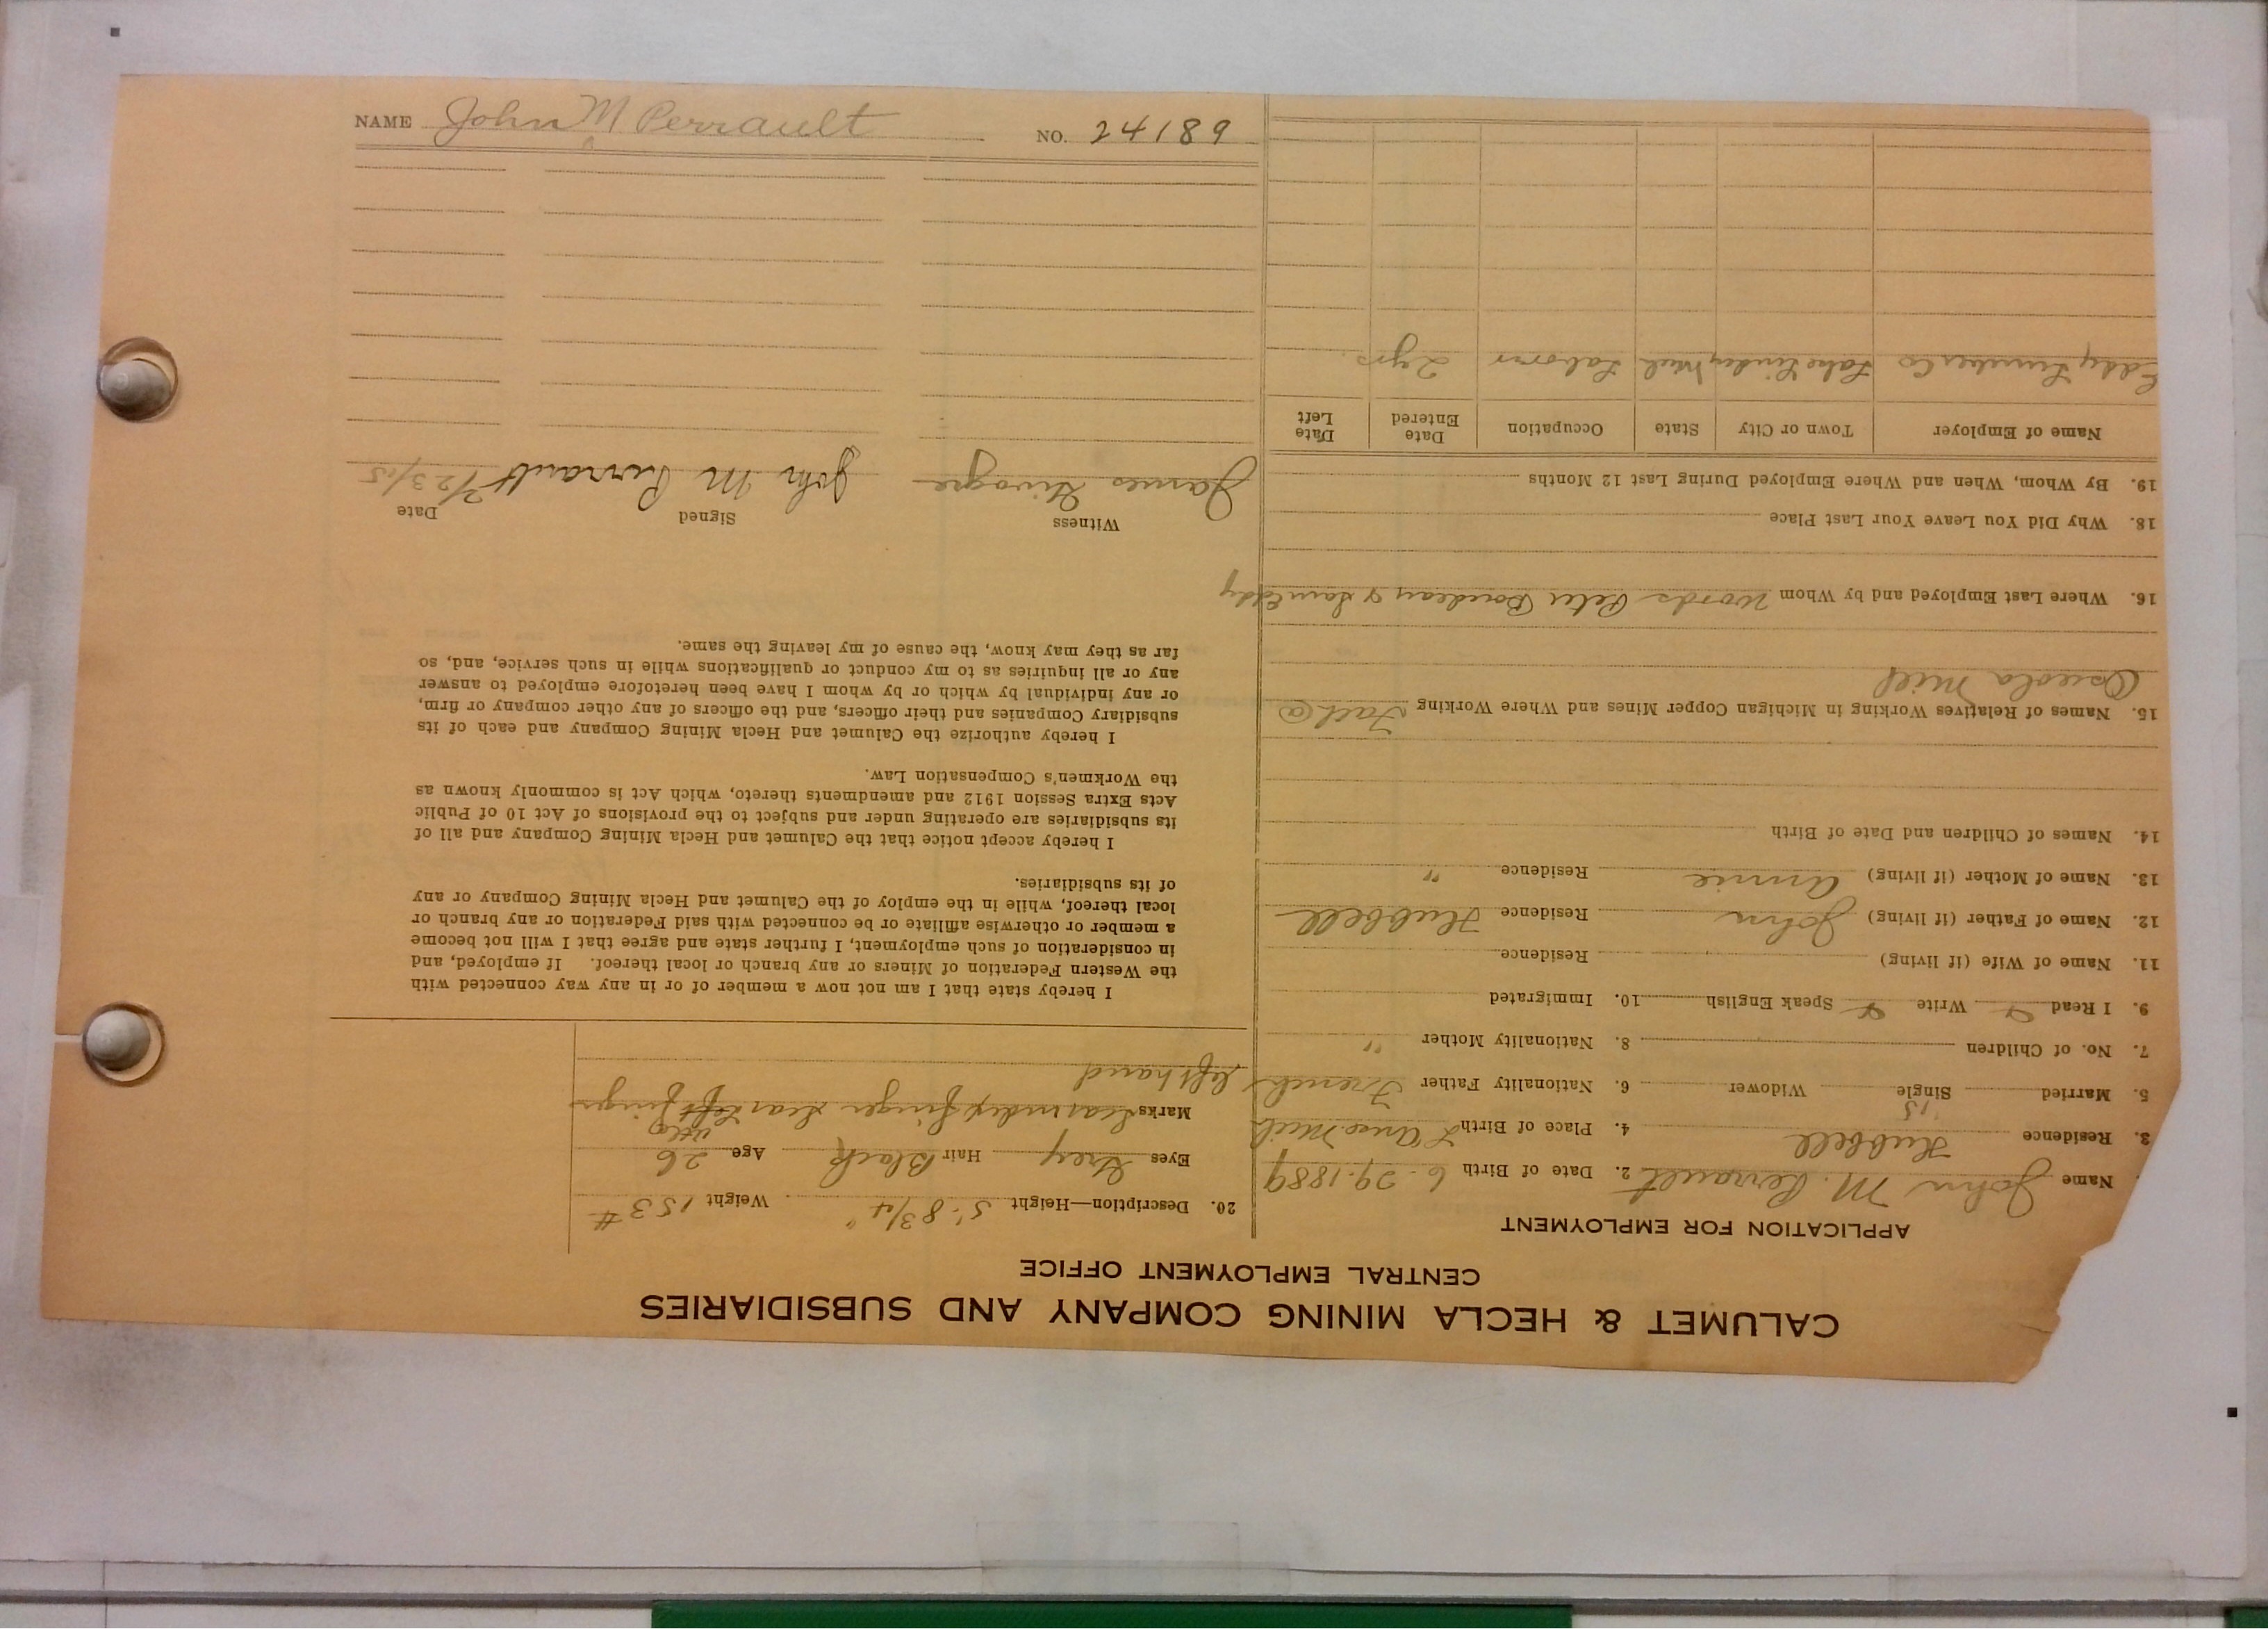 CALUMET & HECLA MINING COMPANY AND SUBSIDIARIES
CENTRAL EMPLOYMENT OFFICE
APPLICATION FOR EMPLOYMENT
Name John M. Perrault 2. Date of Birth 6-29-1889
3. Residence Hubbell 4. Place of Birth L'Anse Mich
5. Married Single Widower 6. Nationality Father French
7. No. of Children 8. Nationality Mother "
9. I Read Write Speak English 10. Immigrated
11. Name of Wife (if living) Residence
12. Name of Father (if living) John Residence Hubbell
13. Name of Mother (if living) Annie Residence "
14. Names of Children and Date of Birth
15. Names of Relatives Working in Michigan Copper Mines and Where Working Fath @
Osceola Mill
16. Where Last Employed and by Whom Woods Peter & Sam Eddy
18. Why Did You Leave Your Last Place
19. By Whom, When and Where Employed During Last 12 Months
Name of Employer Town or City State Occupation Date Entered Date Left
Eddy Lumber Co Lake Linden Mich Laborer 2 yrs
20. Description—Height 5'-8 3/4" Weight 153 #
Eyes Grey Hair Black Age 26
Marks Scar index finger Scar left finger
left hand
I hereby state that I am not now a member of or in any way connected with
the Western Federation of Miners or any branch or local thereof. If employed, and
in consideration of such employment, I further state and agree that I will not become
a member or otherwise affiliate or be connected with said Federation or any branch or
local thereof, while in the employ of the Calumet and Hecla Mining Company or any
of its subsidiaries.
I hereby accept notice that the Calumet and Hecla Mining Company and all of
its subsidiaries are operating under and subject to the provisions of Act 10 of Public
Acts Extra Session 1912 and amendments thereto, which Act is commonly known as
the Workmen's Compensation Law.
I hereby authorize the Calumet and Hecla Mining Company and each of its
subsidiary Companies and their officers, and the officers of any other company or firm,
or any individual by which or by whom I have been heretofore employed to answer
any or all inquiries as to my conduct or qualifications while in such service, and, so
far as they may know, the cause of my leaving the same.
Witness Signed Date
James John M Perrault 7/23/15
NAME John M Perrault NO. 24189